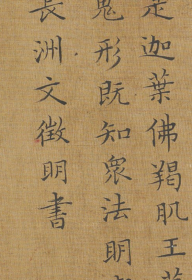 是迦葉佛羯肌王
鬼形既知眾法明
長洲文徵明書